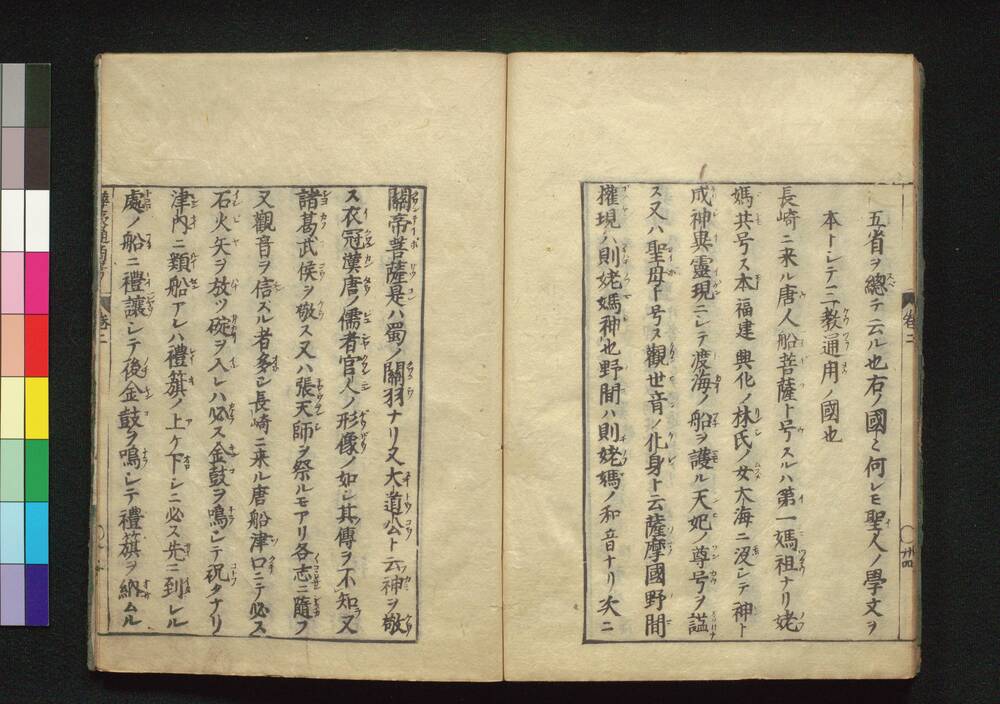 五省ヲ總テ云ル也右ノ國々何レモ聖人ノ學文ヲ
本トシテ三教通用ノ國也
長崎ニ来ル唐人船菩薩ト号スルハ第一媽祖ナリ姥
媽共号ス本福建興化ノ林氏ノ女大海ニ沒シテ神ト
成神異靈現ニシテ渡海ノ船ヲ護ル天妃ノ尊号ヲ謚
ス又ハ聖母ト号ス觀世音ノ化身ト云薩摩國野間
權現ハ則姥媽神也野間ハ則姥媽ノ和音ナリ次ニ
卷二
卄四
關帝菩薩是ハ蜀ノ關羽ナリ又大道公ト云神ヲ敬
ス衣冠漢唐ノ儒者官人ノ形像ノ如シ其傳ヲ不知又
諸葛武侯ヲ敬ス又ハ張天師ヲ祭ルモアリ各志ニ隨フ
又觀音ヲ信スル者多シ長崎ニ来ル唐船津口ニテ必ス
石火矢ヲ放ツ碇ヲ入レハ必ス金鼓ヲ鳴シテ祝タナリ
津内ニ類船アレハ禮旗ノ上ケ下シニ必ス先ニ到レル
處ノ船ニ禮讓シテ後金鼓ヲ鳴シテ禮旗ヲ納ムル
卷二